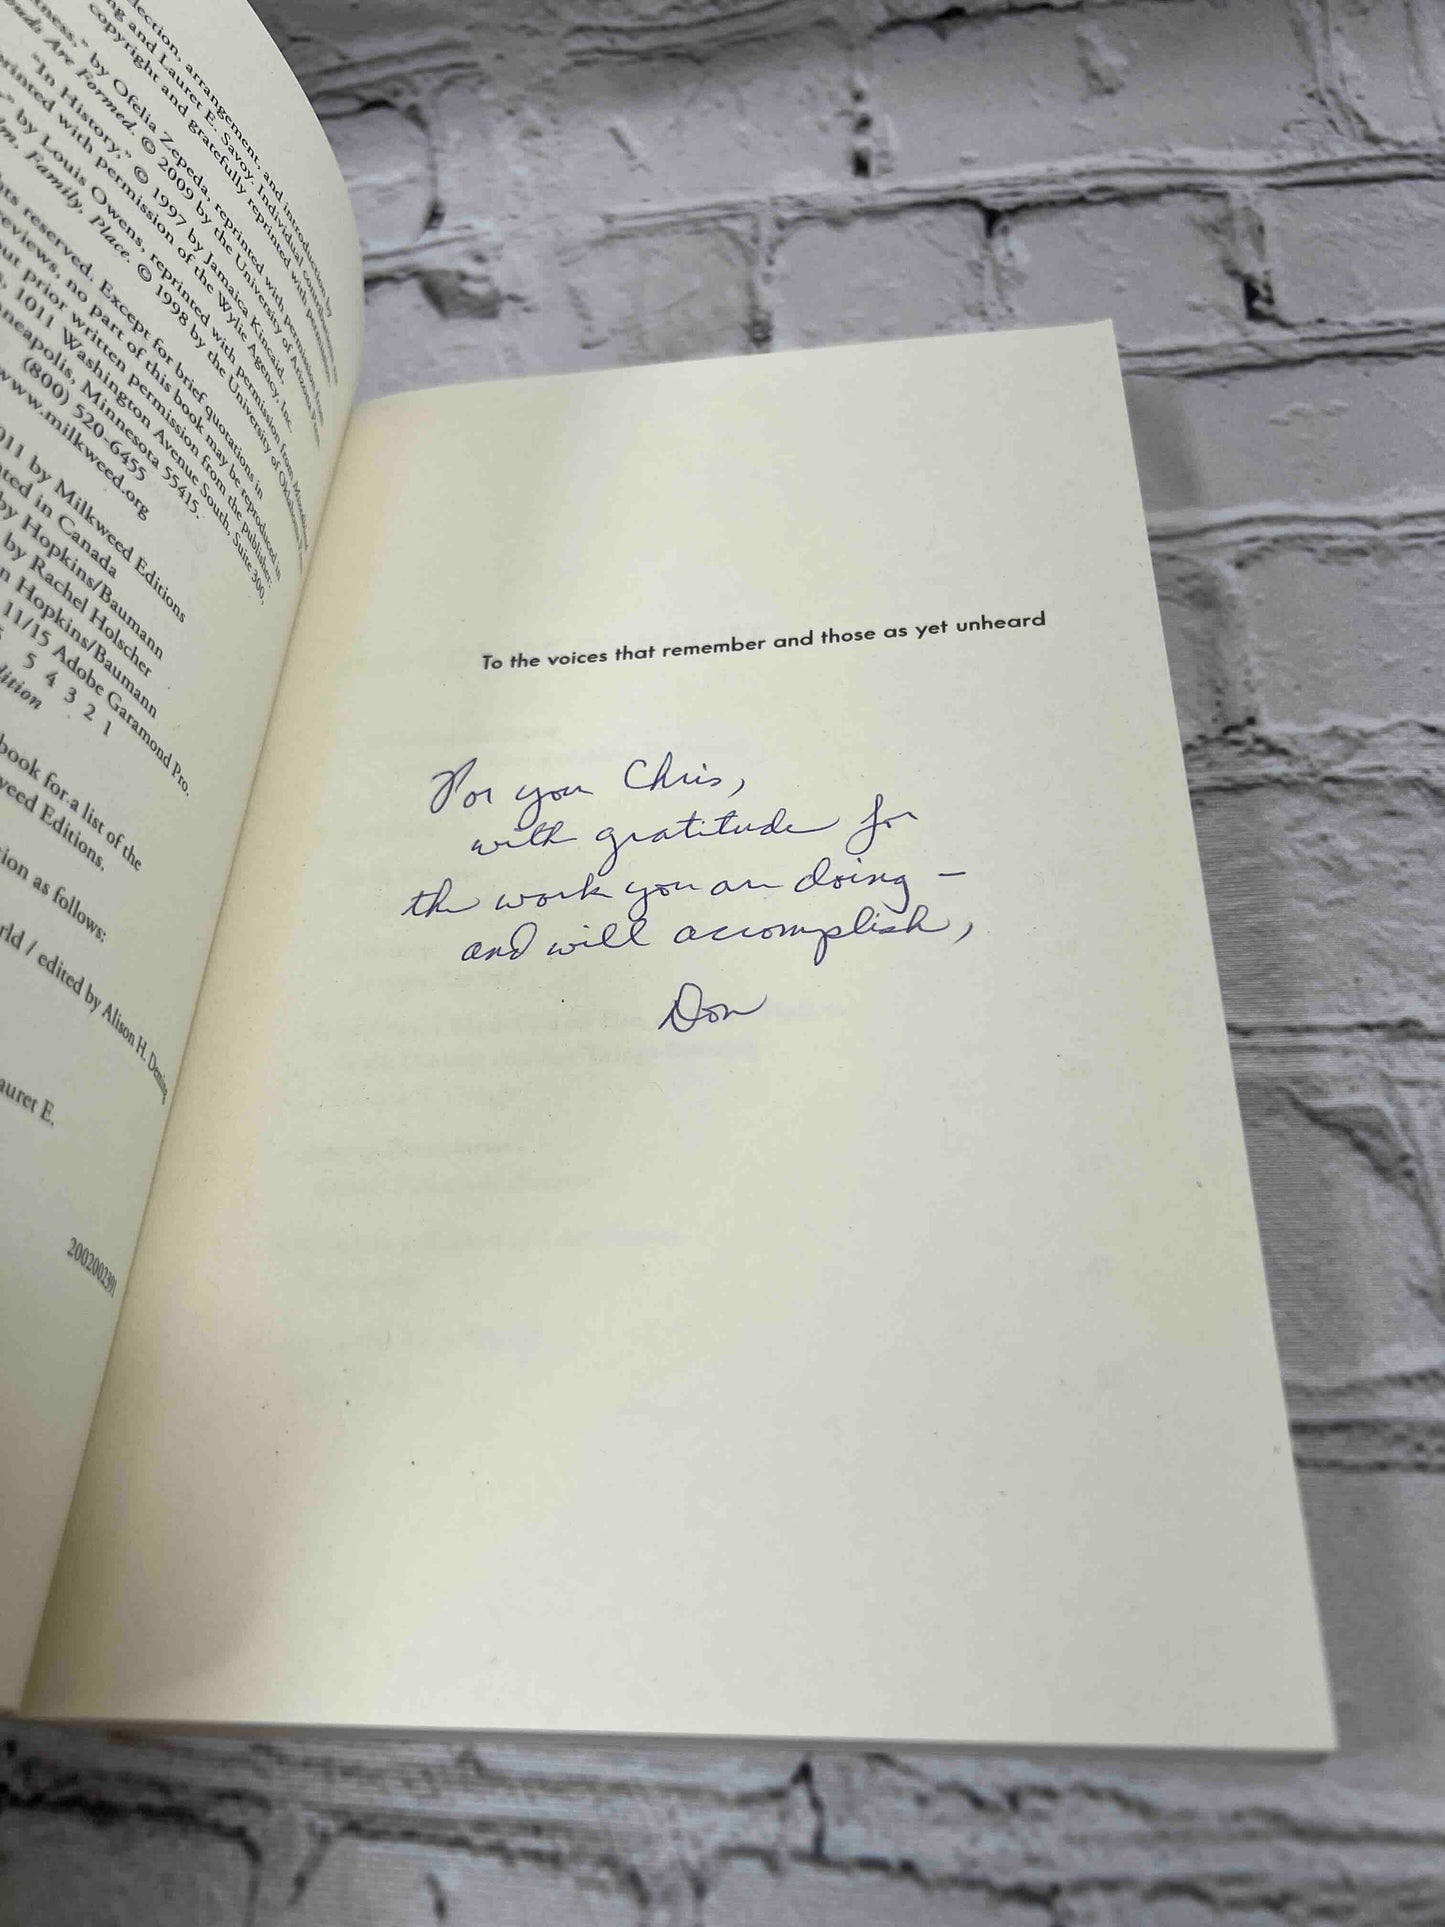 lection, arrangement, and introduction by
ng and Lauret E. Savoy. Individual contributions are
copyright and gratefully reprinted with permission.
ness," by Ofelia Zepeda, reprinted with permission from
ouds Are Formed. © 2009 by the University of Arizona Press.
"In History," © 1997 by Jamaica Kincaid,
printed with permission of the Wylie Agency, Inc.
" by Louis Owens, reprinted with permission from
Family, Place. © 1998 by the University of Oklahoma
hts reserved. Except for brief quotations in
reviews, no part of this book may be reproduced in
out prior written permission from the publisher:
1011 Washington Avenue South, Suite 300,
nneapolis, Minnesota 55415.
(800) 520-6455
www.milkweed.org
011 by Milkweed Editions
nted in Canada
by Hopkins/Baumann
by Rachel Holscher
n Hopkins/Baumann
11/15 Adobe Garamond Pro.
5 4 3 2 1
dition
book for a list of the
weed Editions.
tion as follows:
rld / edited by Alison H. Deming,
auret E.
2002002391
To the voices that remember and those as yet unheard
For you Chris,
with gratitude for
the work you are doing –
and will accomplish,
Don